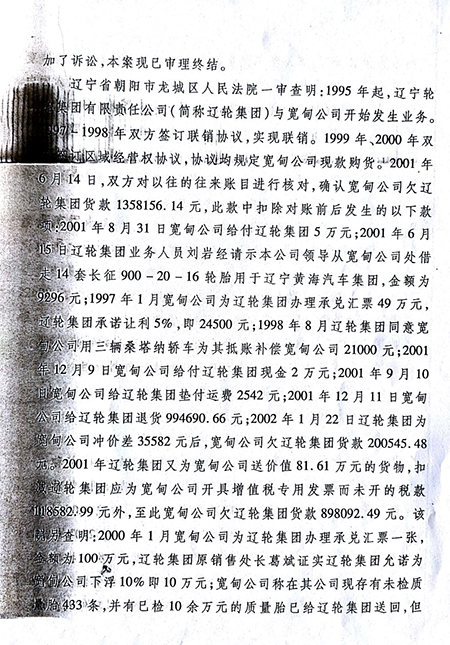 加了诉讼,本案现已审理终结。
辽宁省朝阳市龙城区人民法院一审查明:1995年起,辽宁轮
集团有限责任公司(简称辽轮集团)与宽甸公司开始发生业务。
1997-1998年双方签订联销协议,实现联销。1999年、2000年双
签订区域经营权协议,协议均规定宽甸公司现款购货。2001年
6月14日,双方对以往的往来账目进行核对,确认宽甸公司欠辽
轮集团货款1358156.14元,此款中扣除对账前后发生的以下款
项:2001年8月31日宽甸公司给付辽轮集团5万元;2001年6月
15日辽轮集团业务人员刘岩经请示本公司领导从宽甸公司处借
走14套长征900-20-16轮胎用于辽宁黄海汽车集团,金额为
9296元;1997年1月宽甸公司为辽轮集团办理承兑汇票49万元,
辽轮集团承诺让利5%,即24500元;1998年8月辽轮集团同意宽
甸公司用三辆桑塔纳轿车为其抵账补偿宽甸公司21000元;2001
年12月9日宽甸公司给付辽轮集团现金2万元;2001年9月10
日宽甸公司给辽轮集团垫付运费2542元;2001年12月11日宽甸
公司给辽轮集团退货994690.66元;2002年1月22日辽轮集团为
宽甸公司冲价差35582元后,宽甸公司欠辽轮集团货款200545.48
元。2001年辽轮集团又为宽甸公司送价值81.61万元的货物,扣
减辽轮集团应为宽甸公司开具增值税专用发票而未开的税款
118582.99元外,至此宽甸公司欠辽轮集团货款898092.49元。该
院另查明:2000年1月宽甸公司为辽轮集团办理承兑汇票一张,
金额为100万元,辽轮集团原销售处长葛斌证实辽轮集团允诺为
宽甸公司下浮10%即10万元;宽甸公司称在其公司现存有未检质
量胎433条,并有已检10余万元的质量胎已给辽轮集团送回,但